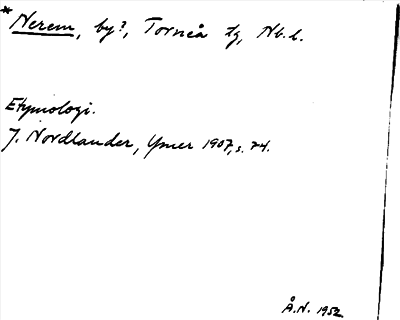 *Nerem, by?, Torneå tg, Nb. l.
Etymologi.
J. Nordlander, Ymer 1907, s. 74.
Å.N. 1952